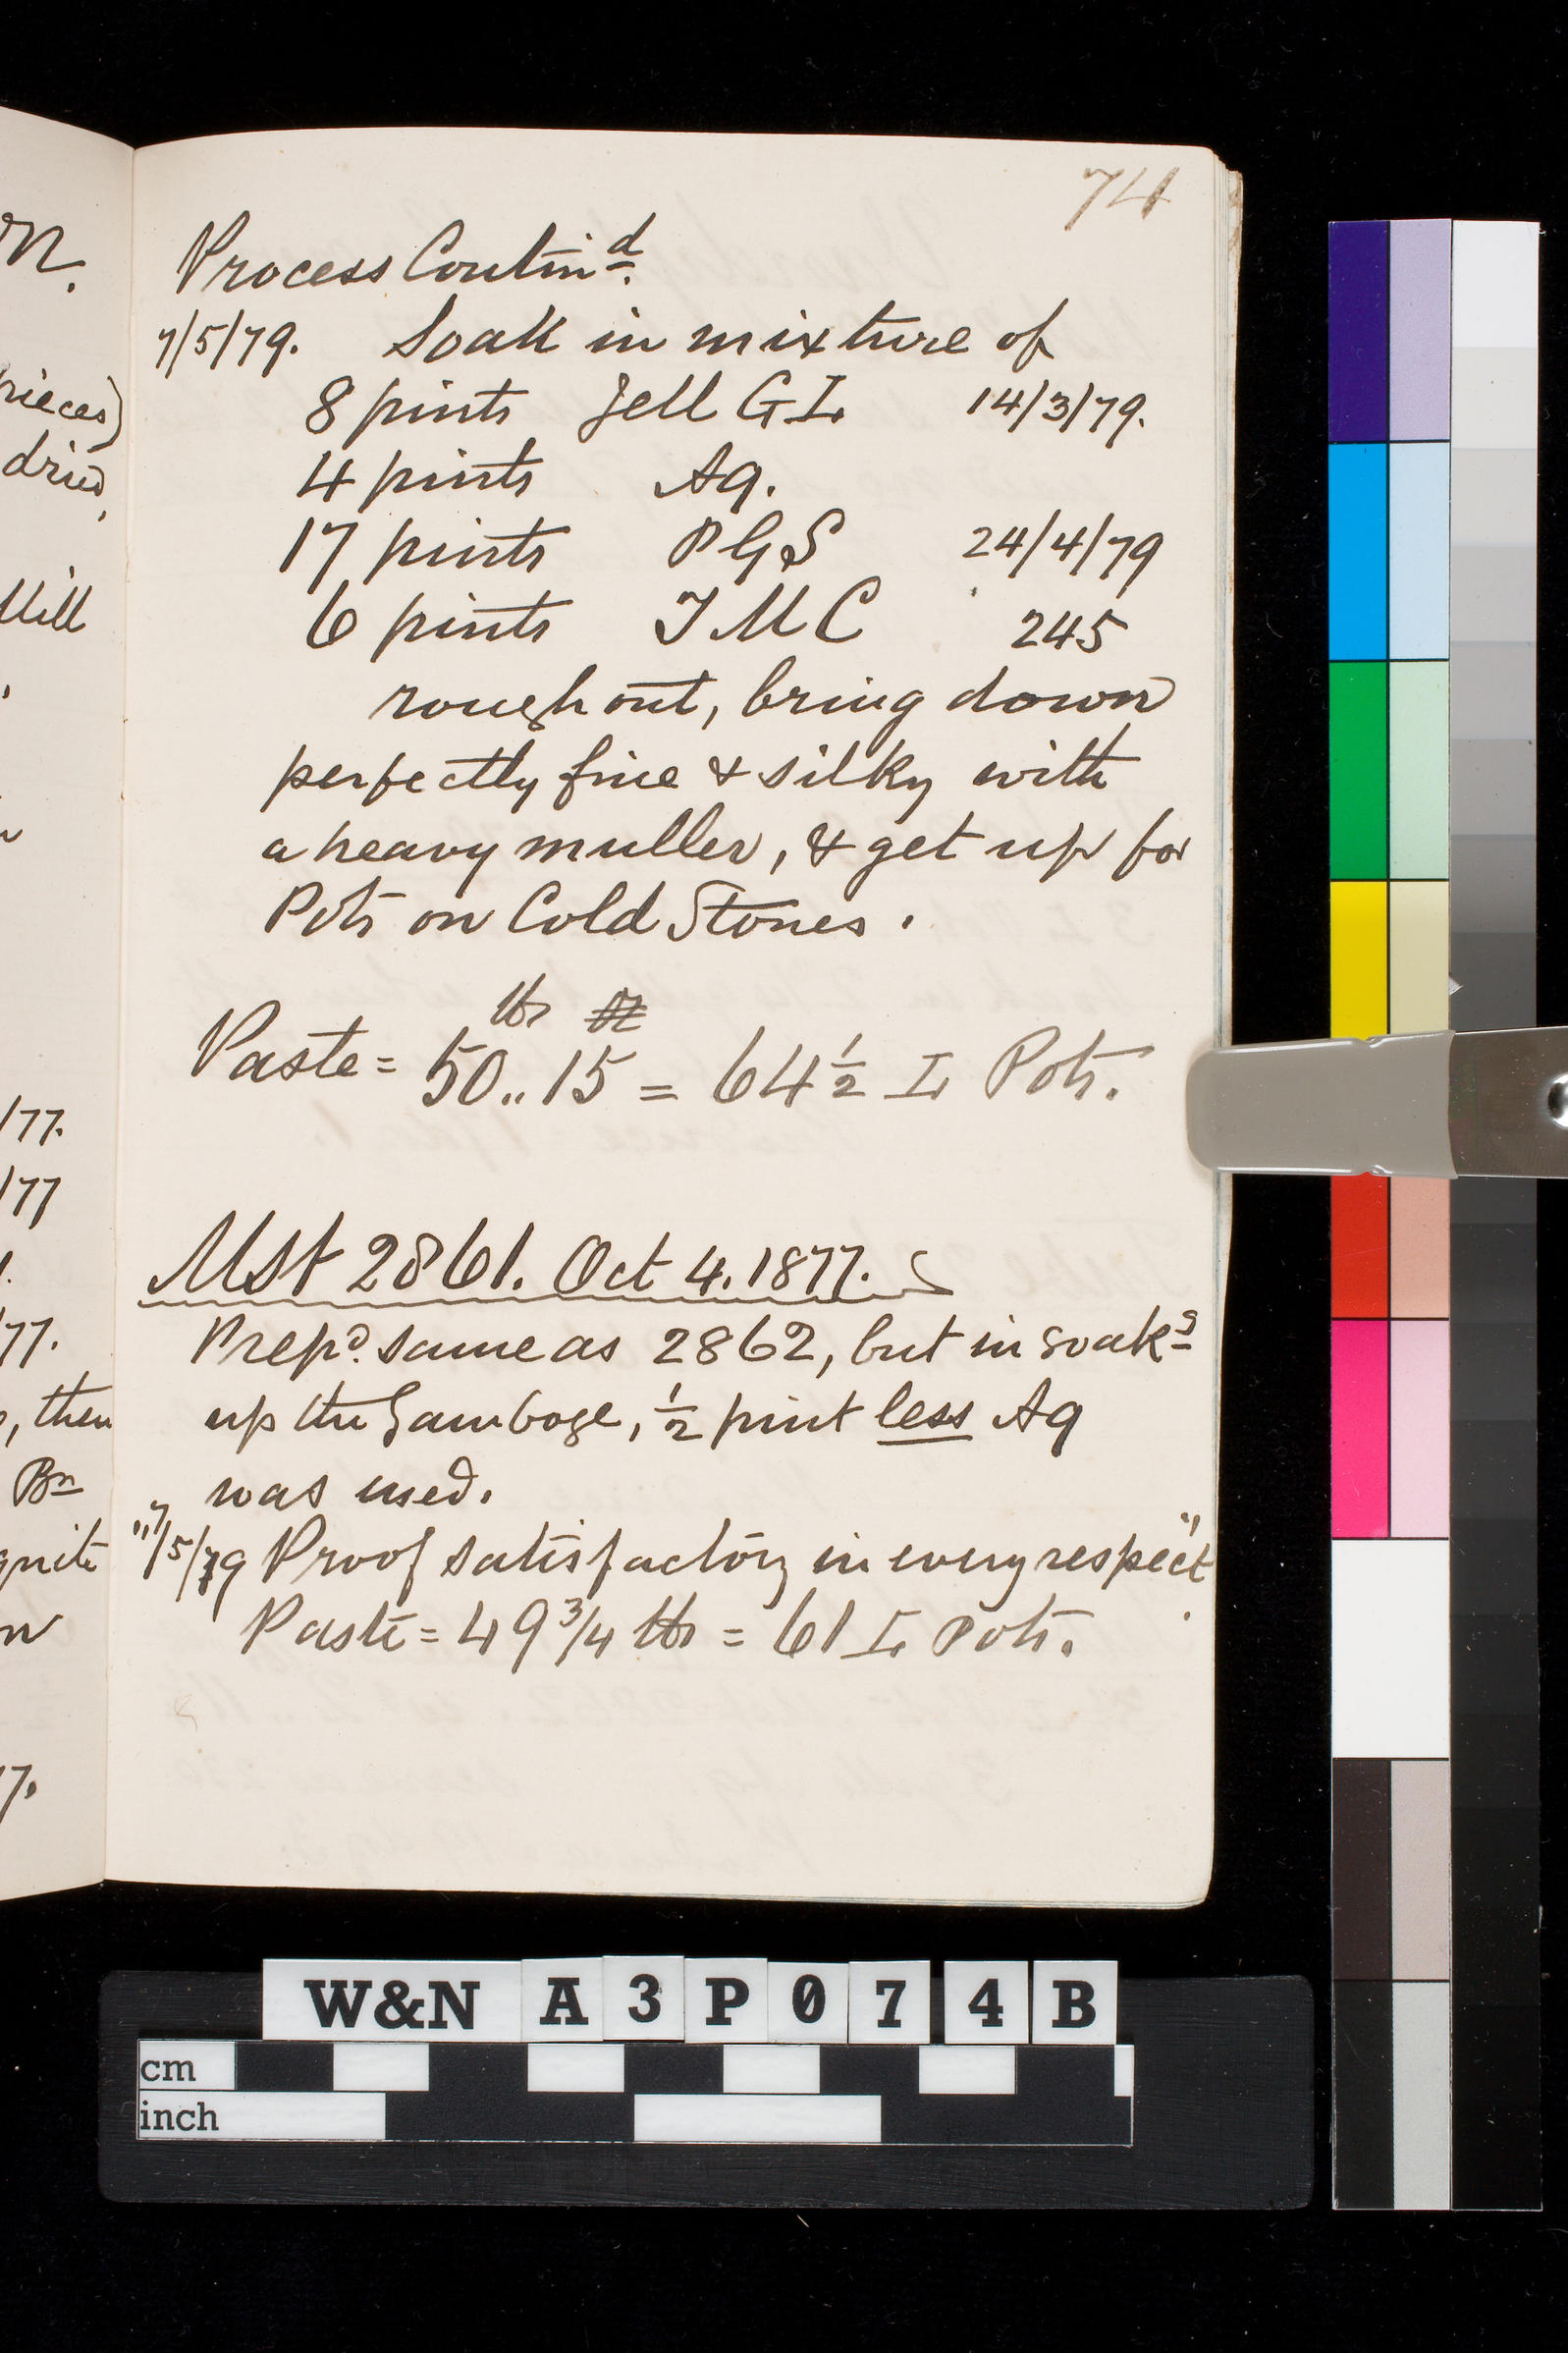 74
Process Contind.
7/5/79. Soak in mixture of
8 pints Jell GL 14/3/79.
4 pints Aq.
17 pints PGS 24/4/79
6 pints JMC 245
rough out, bring down
perfectly fine & silky with
a heavy muller, & get up for
Pots on Cold Stones.
lbs oz
Paste = 50..15 = 64½ L Pots.
Mst 2861. Oct 4. 1877.
Prepd. same as 2862, but in soakg
up the Gamboge, ½ pint less Aq
was used.
"7/5/79 Proof satisfactory in every respect"
Paste = 49 3/4 lbs = 61 L Pots.
n.
pieces)
dried,
Mill
/77.
/77
77.
, then
Bn
quite
7.
W&N A3P074B
cm
inch